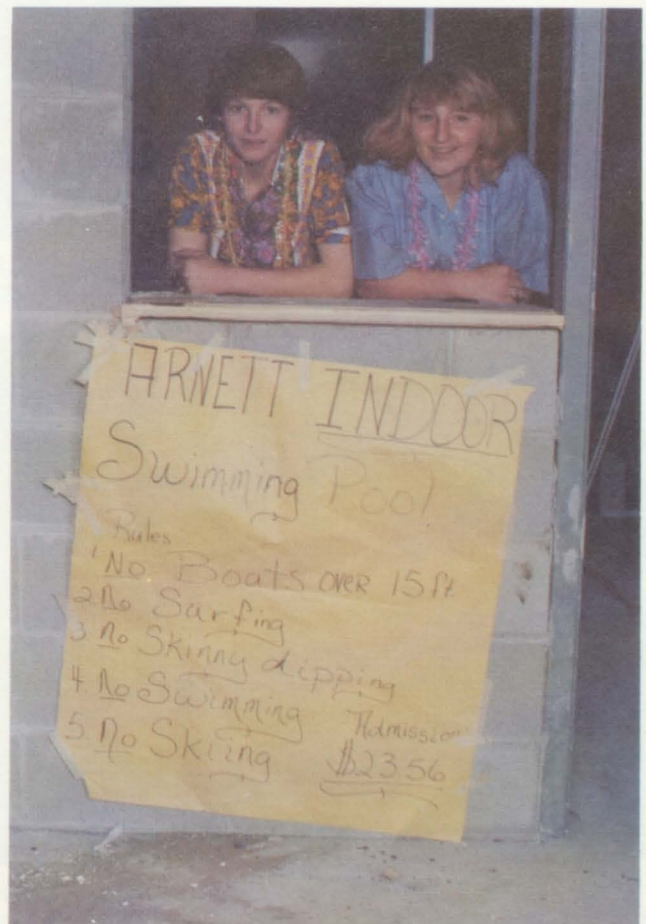 ARNETT INDOOR
Swimming Pool
Rules
1 No Boats OVER 15 ft
2. No Surfing
3 No Skinny dipping
4. No Swimming
5. No Skiing
Admission
$23.56